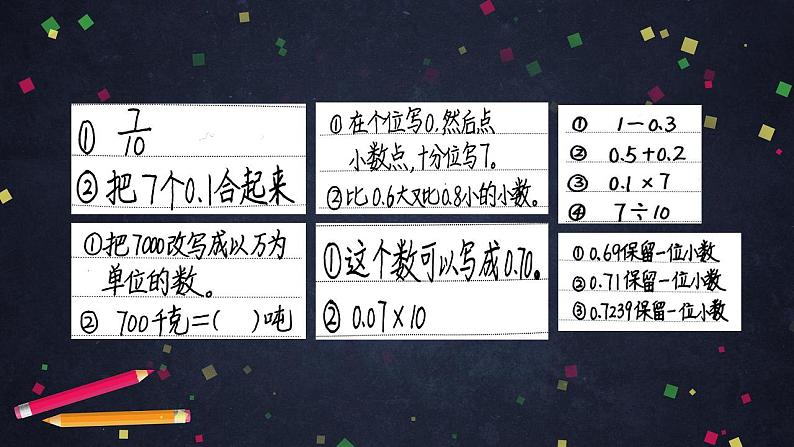 ① 7/10
② 把7个0.1合起来
① 在个位写0,然后点
小数点,十分位写7。
② 比0.6大又比0.8小的小数。
① 1-0.3
② 0.5+0.2
③ 0.1×7
④ 7÷10
① 把7000改写成以万为
单位的数。
② 700千克=( )吨
① 这个数可以写成0.70。
② 0.07×10
① 0.69保留一位小数
② 0.71保留一位小数
③ 0.7239保留一位小数